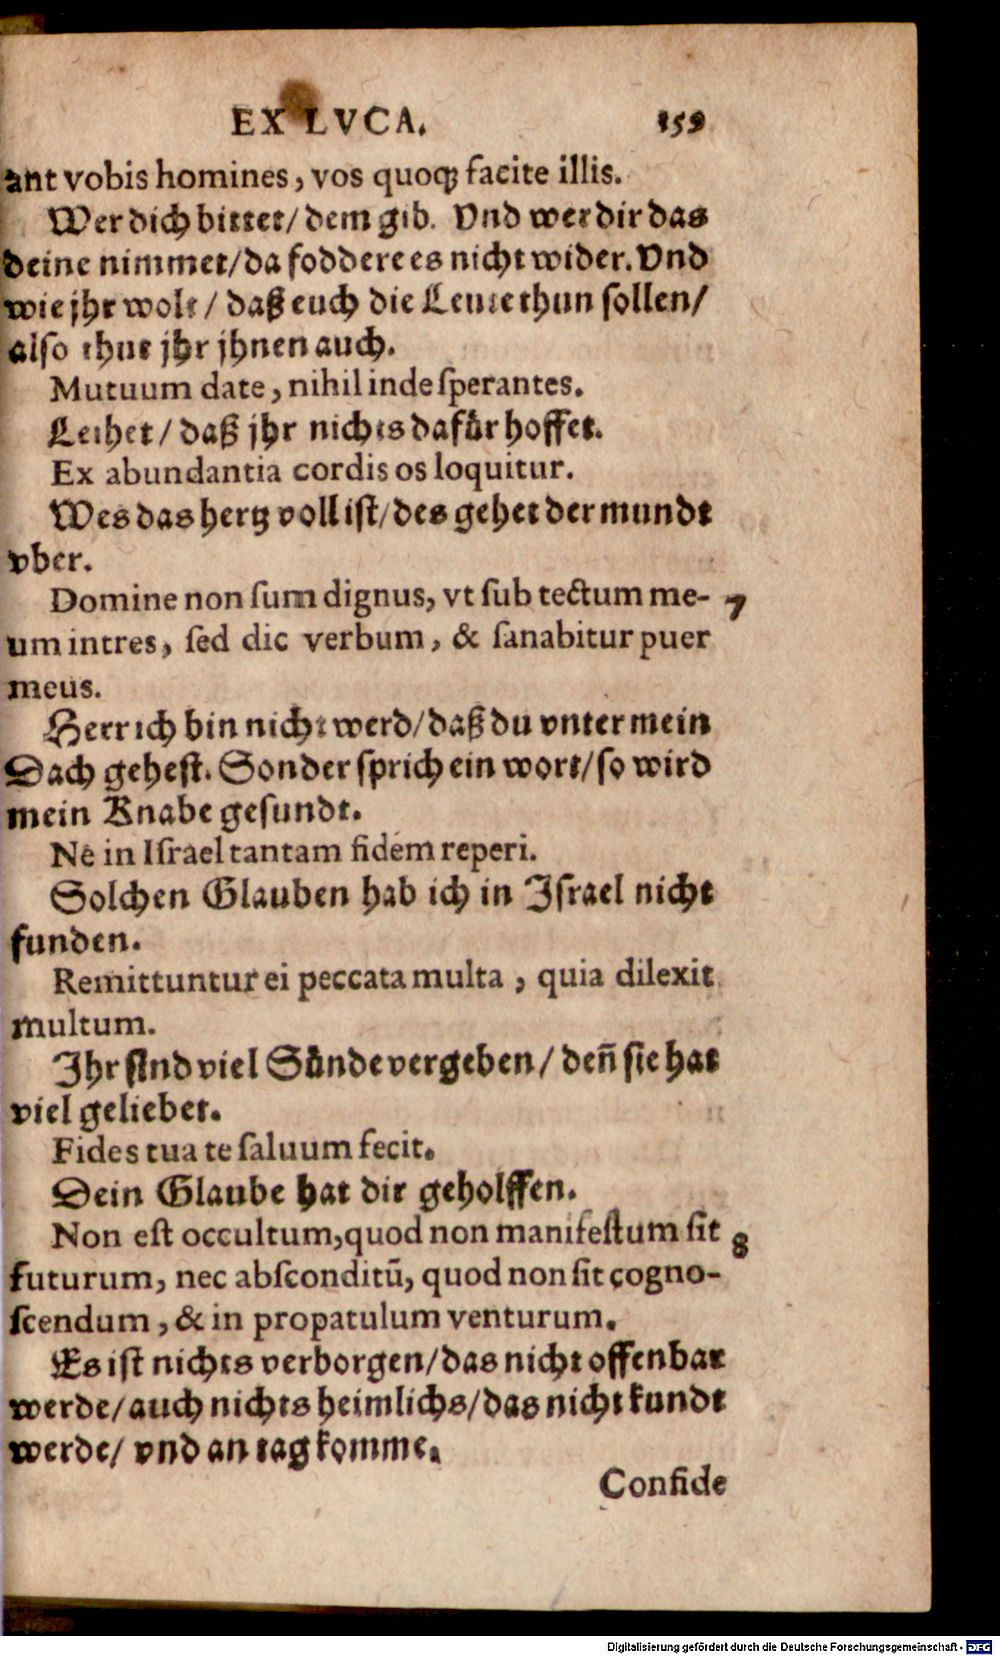 EX LVCA. 159
ant vobis homines, vos quoqꝫ facite illis.
Wer dich bittet/ dem gib. Vnd wer dir das
deine nimmet/ da foddere es nicht wider. Vnd
wie jhr wolt/ daß euch die Leute thun sollen/
also thut jhr jhnen auch.
Mutuum date, nihil inde sperantes.
Leihet/ daß jhr nichts dafür hoffet.
Ex abundantia cordis os loquitur.
Wes das hertz voll ist/ des gehet der mundt
vber.
Domine non sum dignus, vt sub tectum me- 7
um intres, sed dic verbum, & sanabitur puer
meus.
Herr ich bin nicht werd/ daß du vnter mein
Dach gehest. Sonder sprich ein wort/ so wird
mein Knabe gesundt.
Nē in Israel tantam fidem reperi.
Solchen Glauben hab ich in Israel nicht
funden.
Remittuntur ei peccata multa, quia dilexit
multum.
Ihr sind viel Sünde vergeben/ deñ sie hat
viel geliebet.
Fides tua te saluum fecit.
Dein Glaube hat dir geholffen.
Non est occultum, quod non manifestum sit 8
futurum, nec absconditū, quod non sit cogno-
scendum, & in propatulum venturum.
Es ist nichts verborgen/ das nicht offenbar
werde/ auch nichts heimlichs/ das nicht kundt
werde/ vnd an tag komme.
Confide
Digitalisierung gefördert durch die Deutsche Forschungsgemeinschaft - DFG